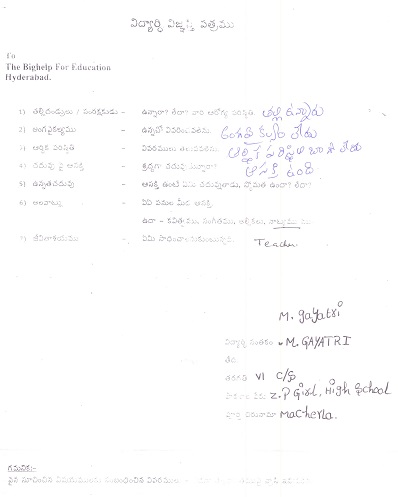 విద్యార్థి విజ్ఞప్తి పత్రము
To
The Bighelp For Education
Hyderabad.
1) తల్లిదండ్రులు / సంరక్షకుడు - ఉన్నారా? లేరా? వారి ఆరోగ్య పరిస్థితి. తల్లి ఉన్నారు
2) అంగవైకల్యము - ఉన్నచో వివరించవలెను. అంగవైకల్యం లేదు
3) ఆర్థిక పరిస్థితి - వివరములు తెలుపవలెను. ఆర్థిక పరిస్థితి బాగా లేదు
4) చదువు పై ఆసక్తి - శ్రద్ధగా చదువుచున్నారా? ఆసక్తి ఉంది
5) ఉన్నతచదువు - ఆసక్తి ఉంటే ఏమి చదువుతాడు, స్తోమత ఉందా? లేదా?
6) అలవాట్లు - ఏఏ పనుల మీద ఆసక్తి.
ఉదా - కవిత్వము, సంగీతము, అల్లికలు, నాట్యము
7) జీవితాశయము - ఏమి సాధించాలనుకుంటున్నావు. Teacher
M. gayatri
విద్యార్థి సంతకం M. GAYATRI
తేది.
తరగతి VI C/S
పాఠశాల పేరు Z.P Girl, High School
పూర్తి చిరునామా Macherla.
గమనిక:-
పైన సూచించిన విషయములకు సంబంధించిన వివరములు -